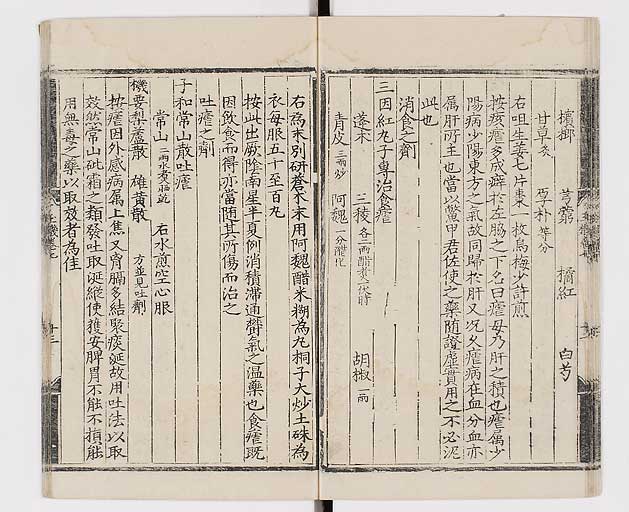 檳榔 芎藭 橘紅 白芍
甘草炙 厚朴等分
右咀生姜七片棗一枚烏梅少許煎
按痎瘧多成癖於左脇之下名曰瘧母乃肝之積也瘧属少
陽病少陽東方之氣故同歸於肝又况久瘧病在血分血亦
属肝所主也當以鱉甲君佐使之藥随證虛實用之不必泥
此也
消食之劑
三因紅丸子專治食瘧
蓬朮 三稜各二兩醋煮一伏時 胡椒一兩
青皮二兩炒 阿魏一分醋化
右為末別研蒼米末用阿魏醋米糊為丸桐子大炒土硃為
衣每服五十至百丸
按此出厥陰南星半夏例消積滯通欝氣之温藥也食瘧既
因飲食而得亦當随其所傷而治之
吐瘧之劑
子和常山散吐瘧
常山二兩水煮 右水煎空心服
機要梨蘆散 雄黄散 方並見吐劑
按瘧因外感病属上焦又胷膈多結聚痰涎故用吐法以取
效然常山砒霜之類發吐取涎縱使獲安脾胃不能不損能
用無毒之藥以取效者為佳
十三